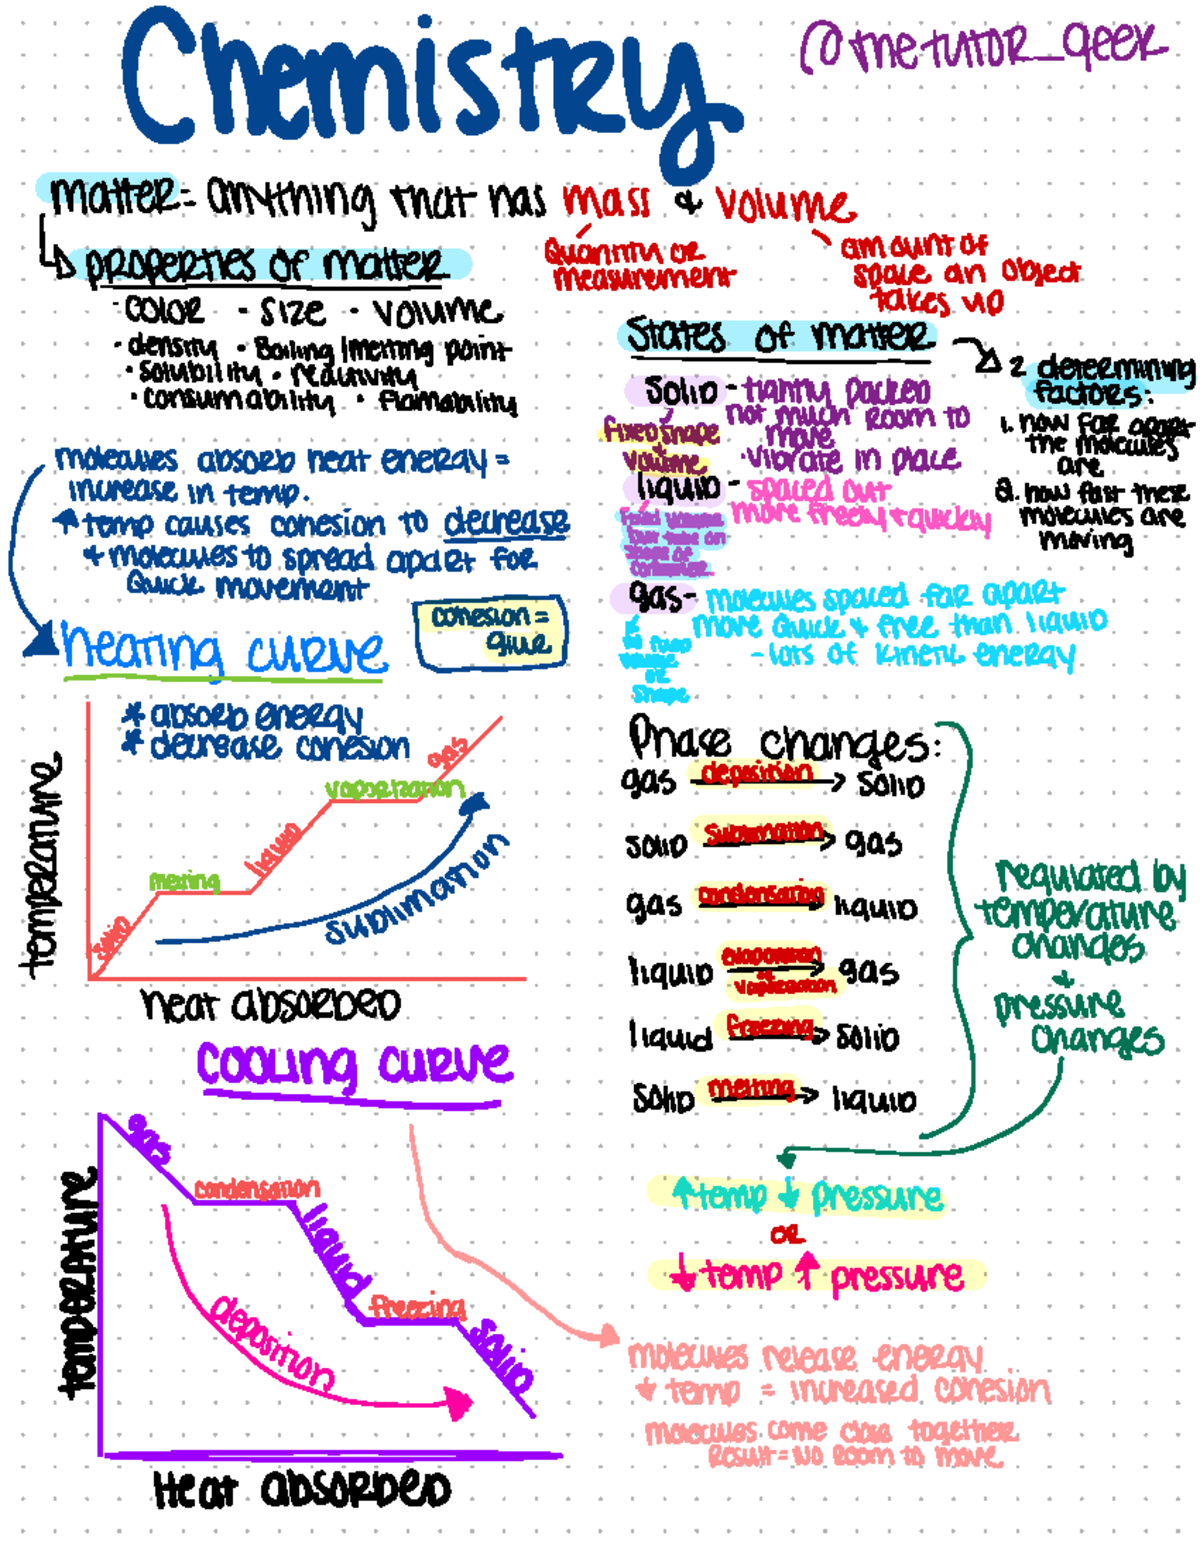 Chemistry
@metutor_geek
matter = anything that has mass & volume
Quantity or
measurement
amount of
space an object
takes up
properties of matter
· color · size · volume
· density · Boiling/melting point
· solubility · reactivity
· consumability · flamability
States of matter
2 determining
factors:
1. how far apart
the molecules
are
2. how fast these
molecules are
moving
solid - tightly packed
not much room to
move
· vibrate in place
fixed shape
+
volume
liquid - spaced out
more freely & quickly
fixed volume
but take on
shape of
container
gas - molecules spaced far apart
more quick & free than liquid
- lots of kinetic energy
no fixed
volume
or
shape
molecules absorb heat energy =
increase in temp.
↑ temp causes cohesion to decrease
+ molecules to spread apart for
Quick movement
cohesion =
glue
heating curve
* absorb energy
* decrease cohesion
temperature
solid
melting
liquid
vaporization
gas
sublimation
heat absorbed
Phase changes:
gas deposition → solid
solid sublimation → gas
gas condensation → liquid
liquid evaporation → gas
or
vaporization
liquid freezing → solid
solid melting → liquid
regulated by
temperature
changes
+
pressure
changes
↑ temp ↓ pressure
OR
↓ temp ↑ pressure
cooling curve
temperature
gas
condensation
liquid
freezing
solid
deposition
Heat absorbed
molecules release energy
↓ temp = increased cohesion
molecules come close together
Result = No Room to move